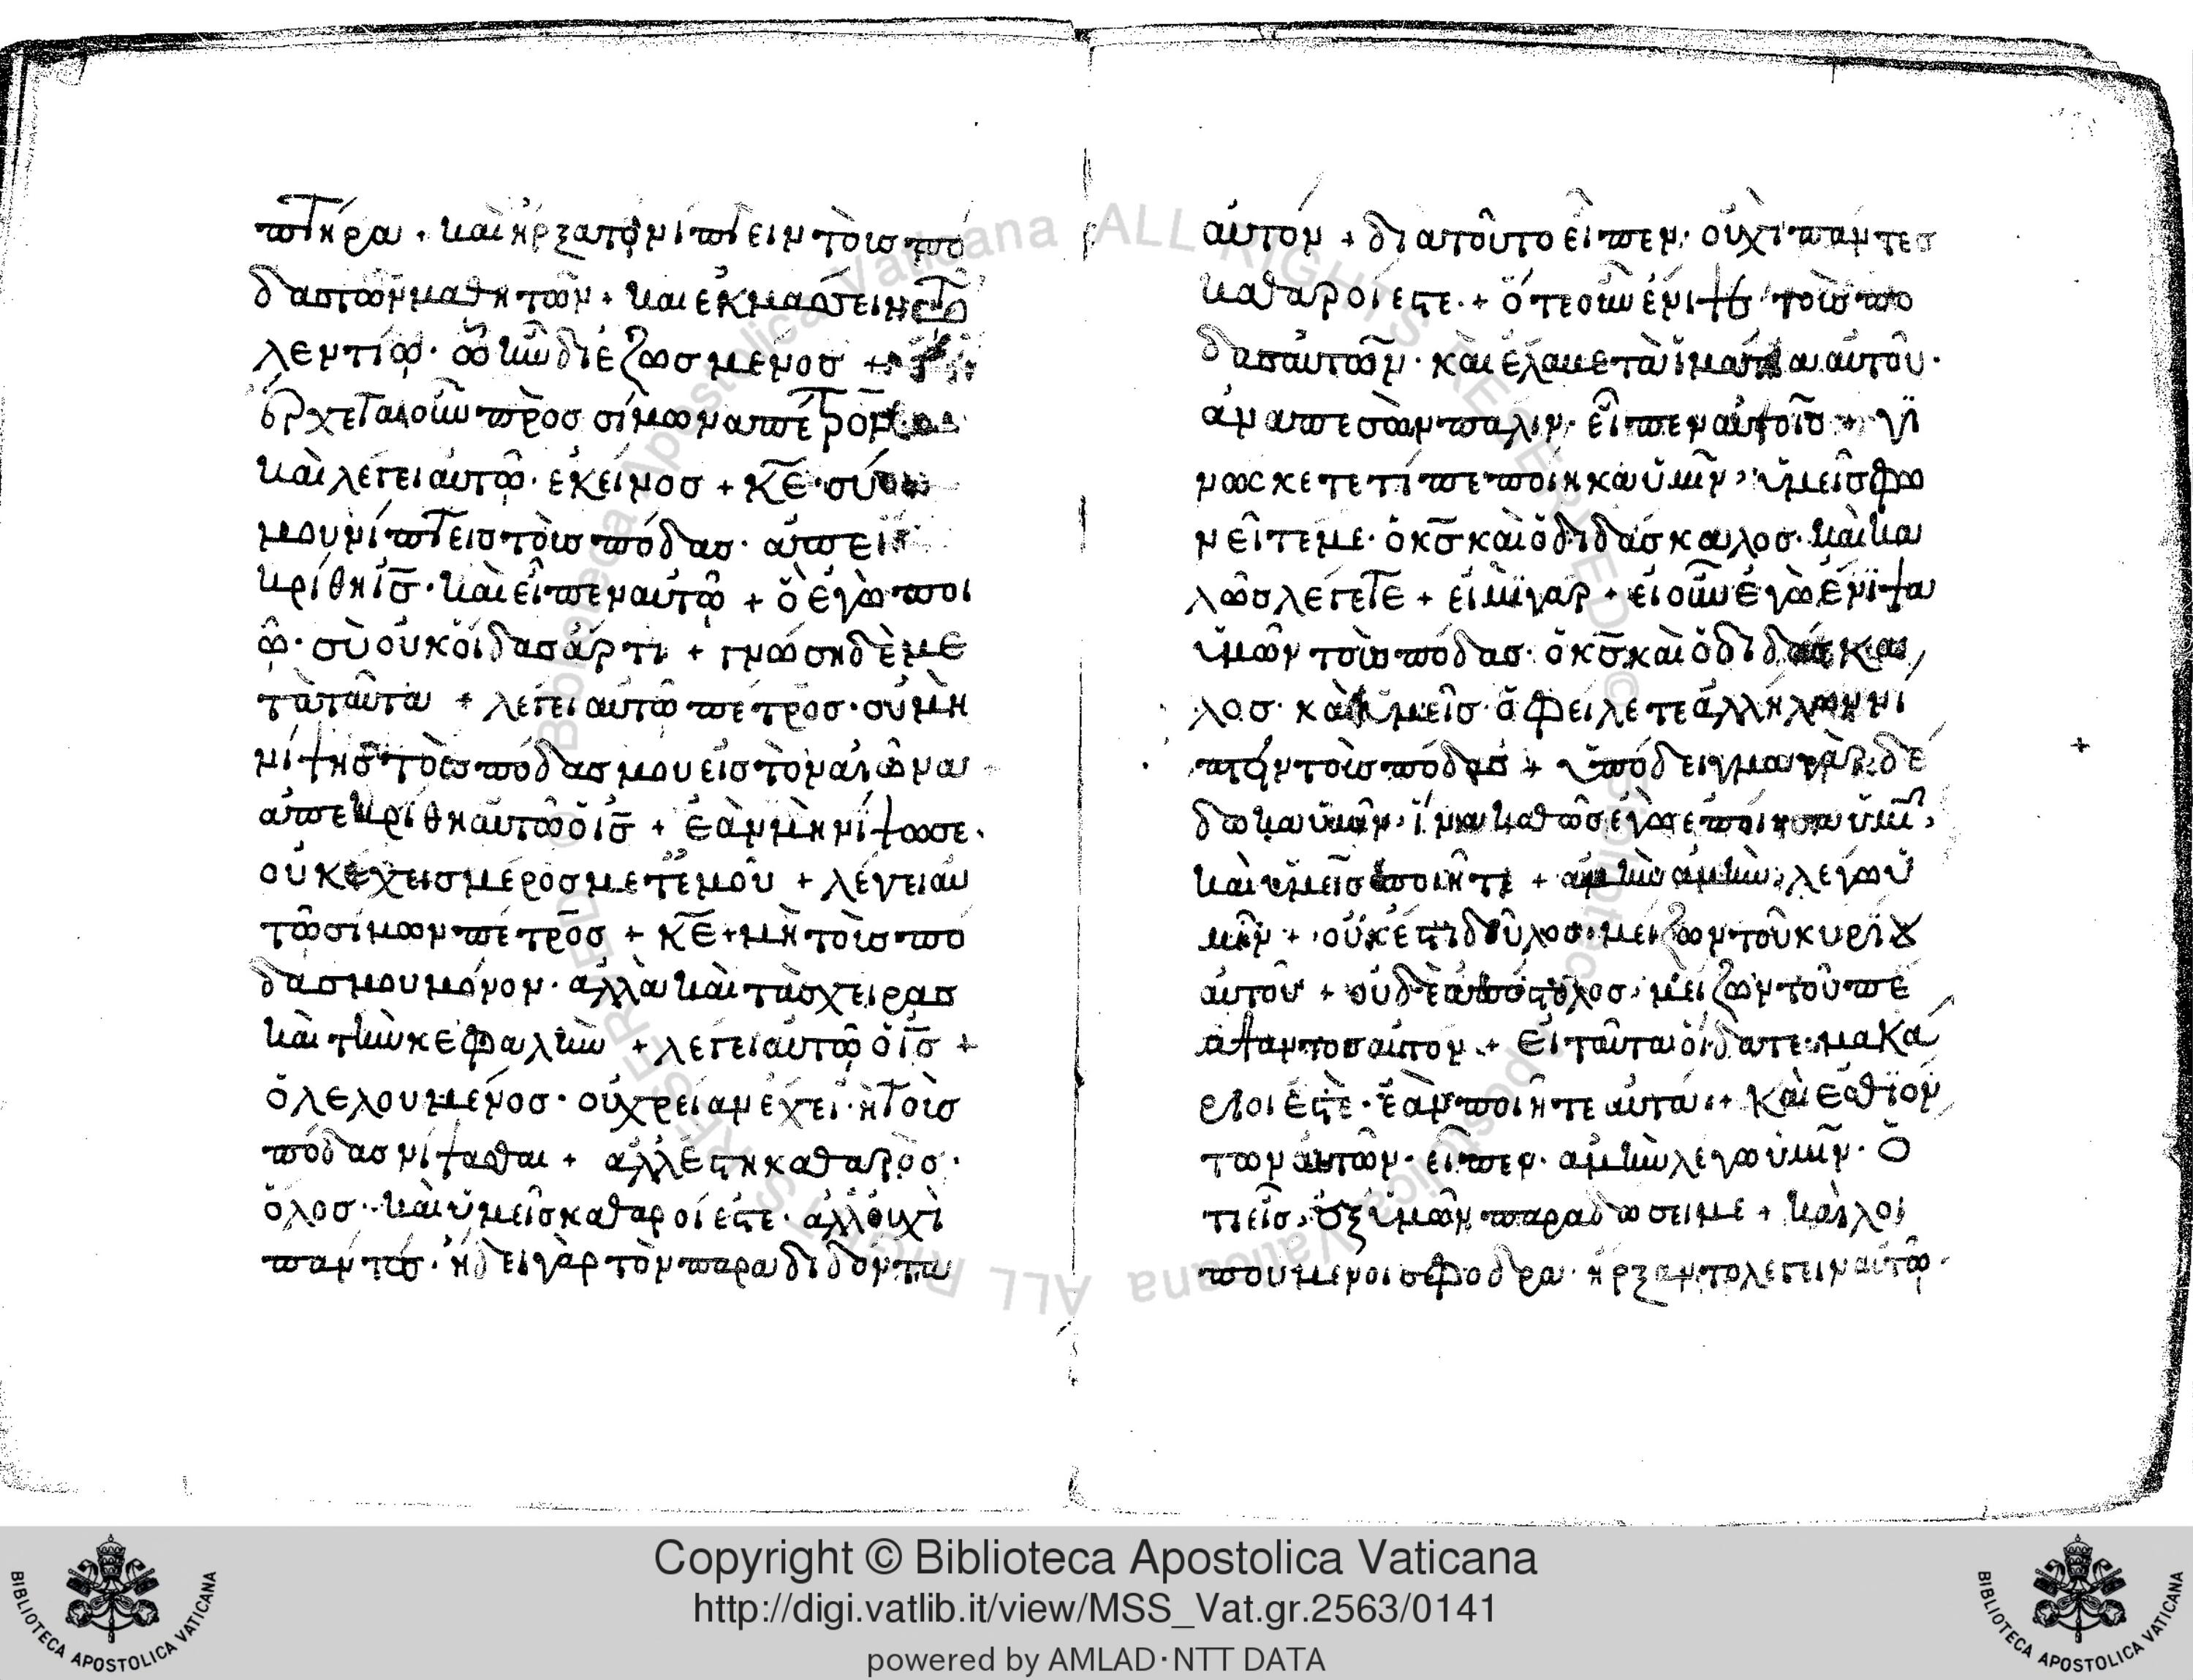 πτῆρα + καὶ ἤρξατο νίπτειν τοὺς πό
δας τῶν μαθητῶν + καὶ ἐκμάσσειν τῶ
λεντίω · ὧ ἦν διεζωσμένος +
ἔρχεται οὖν πρὸς σίμωνα πέτρον
καὶ λέγει αὐτῶ · ἐκεῖνος + κε̅ · σύ
μου νίπτεις τοὺς πόδας · ἀπε
κρίθη ις̅ · καὶ εἶπεν αὐτῶ + ὃ ἐγὼ ποι
ῶ · σὺ οὐκ οἶδας ἄρτι + γνώση δὲ με
τὰ ταῦτα + λέγει αὐτῶ πέτρος · οὐ μὴ
νίψης τοὺς πόδας μου εἰς τὸν αἰῶνα
ἀπεκρίθη αὐτῶ ὁ ις̅ + ἐὰν μὴ νίψω σε ·
οὐκ ἔχεις μέρος μετ' ἐμοῦ + λέγει αὐ
τῶ σίμων πέτρος + κε̅ + μὴ τοὺς πό
δας μου μόνον · ἀλλὰ καὶ τὰς χεῖρας
καὶ τὴν κεφαλὴν + λέγει αὐτῶ ὁ ις̅ +
ὁ λελουμένος · οὐ χρείαν ἔχει · ἢ τοὺς
πόδας νίψασθαι + ἀλλ' ἔστι καθαρὸς ·
ὅλος · καὶ ὑμεῖς καθαροί ἐστε · ἀλλ' οὐχὶ
πάντες · ἤδει γὰρ τὸν παραδιδόντα
αὐτόν + διατοῦτο εἶπεν · οὐχὶ πάντες
καθαροί ἐστε + ὅτε οὖν ἔνιψε τοὺς πό
δας αὐτῶν · καὶ ἔλαβε τὰ ἱμάτια αὐτοῦ ·
ἀναπεσὼν πάλιν · εἶπεν αὐτοῖς + γι
νώσκετε τί πεποίηκα ὑμῖν · ὑμεῖς φω
νεῖτέ με · ὁ κς̅ καὶ ὁ διδάσκαλος · καὶ κα
λῶς λέγετε + εἰμὶ γάρ + εἰ οὖν ἐγὼ ἔνιψα
ὑμῶν τοὺς πόδας · ὁ κς̅ καὶ ὁ διδάσκα
λος · καὶ ὑμεῖς ὀφείλετε ἀλλήλων νί
πτειν τοὺς πόδας + ὑπόδειγμα γὰρ δέ
δωκα ὑμῖν · ἵνα καθὼς ἐγὼ ἐποίησα ὑμῖν ·
καὶ ὑμεῖς ποιῆτε + ἀμὴν ἀμὴν λέγω ὑ
μῖν + οὐκ ἔστι δοῦλος · μείζων τοῦ κυρίου
αὐτοῦ + οὐδὲ ἀπόστολος · μείζων τοῦ πέ
μψαντος αὐτόν + εἰ ταῦτα οἴδατε · μακά
ριοί ἐστε · ἐὰν ποιῆτε αὐτά + καὶ ἐσθιόν
των αὐτῶν · εἶπεν · ἀμὴν λέγω ὑμῖν · ὅ
τι εἷς · ἐξ ὑμῶν παραδώσει με + καὶ λυ
πούμενοι σφόδρα · ἤρξαντο λέγειν αὐτῶ ·
Copyright © Biblioteca Apostolica Vaticana
http://digi.vatlib.it/view/MSS_Vat.gr.2563/0141
powered by AMLAD·NTT DATA